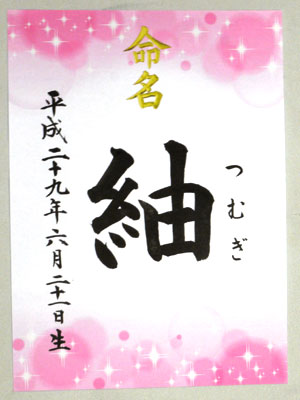 命名
つむぎ
紬
平成二十九年六月二十一日生